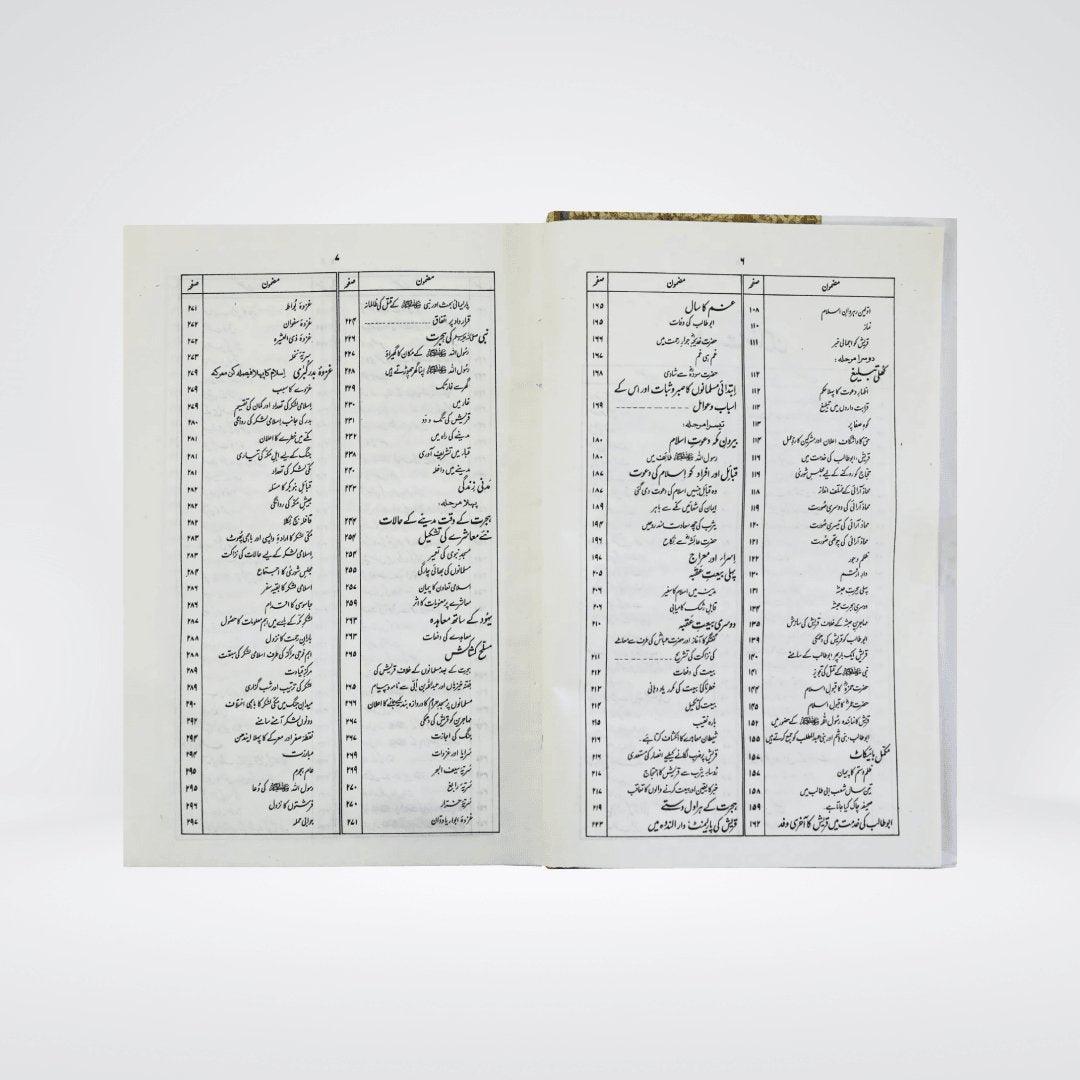 ۶
مضمون صفحہ
اولین رہروانِ اسلام ۱۰۸
نماز ۱۱۰
قریش کو اجمالی خبر ۱۱۱
دوسرا مرحلہ:
کھلی تبلیغ ۱۱۲
اظہارِ دعوت کا پہلا حکم ۱۱۲
قرابت داروں میں تبلیغ ۱۱۲
کوہ صفا پر ۱۱۳
حق کا واشگاف اعلان اور مشرکین کا ردِّ عمل ۱۱۴
قریش، ابوطالب کی خدمت میں ۱۱۶
حجاج کو روکنے کے لیے مجلسِ شوریٰ ۱۱۶
محاذ آرائی کے مختلف انداز ۱۱۸
محاذ آرائی کی دوسری صورت ۱۱۹
محاذ آرائی کی تیسری صورت ۱۲۰
محاذ آرائی کی چوتھی صورت ۱۲۱
ظلم و جور ۱۲۲
دارِ ارقم ۱۳۰
پہلی ہجرتِ حبشہ ۱۳۱
دوسری ہجرتِ حبشہ ۱۳۴
مہاجرینِ حبشہ کے خلاف قریش کی سازش ۱۳۵
ابوطالب کو قریش کی دھمکی ۱۳۹
قریش ایک بار پھر ابوطالب کے سامنے ۱۴۰
نبی ﷺ کے قتل کی تجویز ۱۴۱
حضرت حمزہؓ کا قبولِ اسلام ۱۴۴
حضرت عمرؓ کا قبولِ اسلام ۱۴۵
قریش کا نمائندہ رسول اللہ ﷺ کے حضور میں ۱۵۲
ابوطالب، بنی ہاشم اور بنی عبد المطلب کو جمع کرتے ہیں ۱۵۵
مکمل بائیکاٹ ۱۵۷
ظلم و ستم کا پیمان ۱۵۷
تین سال شعبِ ابی طالب میں ۱۵۸
صحیفہ چاک کیا جاتا ہے ۱۵۹
ابوطالب کی خدمت میں قریش کا آخری وفد ۱۶۲
مضمون صفحہ
غم کا سال ۱۶۵
ابوطالب کی وفات ۱۶۵
حضرت خدیجہؓ جوارِ رحمت میں ۱۶۶
غم ہی غم ۱۶۷
حضرت سودہؓ سے شادی ۱۶۸
ابتدائی مسلمانوں کا صبر و ثبات اور اس کے
اسباب و عوامل ۱۶۹
تیسرا مرحلہ:
بیرونِ مکہ دعوتِ اسلام ۱۸۰
رسول اللہ ﷺ طائف میں ۱۸۰
قبائل اور افراد کو اسلام کی دعوت ۱۸۷
وہ قبائل جنہیں اسلام کی دعوت دی گئی ۱۸۷
ایمان کی شعائیں مکے سے باہر ۱۸۹
یثرب کی چھ سعادت مند روحیں ۱۹۴
حضرت عائشہؓ سے نکاح ۱۹۶
اِسراء اور معراج ۱۹۷
پہلی بیعتِ عقبہ ۲۰۵
مدینہ میں اسلام کا سفیر ۲۰۶
قابلِ رشک کامیابی ۲۰۶
دوسری بیعتِ عقبہ ۲۱۰
گفتگو کا آغاز اور حضرت عباسؓ کی طرف سے معاملے
کی نزاکت کی تشریح ۲۱۱
بیعت کی دفعات ۲۱۲
خطرناکیٔ بیعت کی مکرر یاد دہانی ۲۱۳
بیعت کی تکمیل ۲۱۴
بارہ نقیب ۲۱۵
شیطان معاہدے کا انکشاف کرتا ہے۔ ۲۱۶
قریش پر ضرب لگانے کیلئے انصار کی مستعدی ۲۱۶
رُؤساءِ یثرب سے قریش کا احتجاج ۲۱۷
خبر کا یقین اور بیعت کرنے والوں کا تعاقب ۲۱۷
ہجرت کے ہراول دستے ۲۱۹
قریش کی پارلیمنٹ دار الندوہ میں ۲۲۳
۷
مضمون صفحہ
پارلیمانی بحث اور نبی ﷺ کے قتل کی ظالمانہ
قرارداد پر اتفاق ۲۲۴
نبی ﷺ کی ہجرت ۲۲۶
رسول اللہ ﷺ کے مکان کا گھیراؤ ۲۲۷
رسول اللہ ﷺ اپنا گھر چھوڑتے ہیں ۲۲۸
گھر سے غار تک ۲۲۹
غار میں ۲۳۰
قریش کی تگ و دَو ۲۳۱
مدینے کی راہ میں ۲۳۲
قباء میں تشریف آوری ۲۳۸
مدینے میں داخلہ ۲۴۰
مدنی زندگی ۲۴۳
پہلا مرحلہ:
ہجرت کے وقت مدینے کے حالات ۲۴۴
نئے معاشرے کی تشکیل ۲۵۴
مسجدِ نبوی کی تعمیر ۲۵۴
مسلمانوں کی بھائی چارگی ۲۵۵
اسلامی تعاون کا پیمان ۲۵۷
معاشرے پر معنویات کا اثر ۲۵۹
یہود کے ساتھ معاہدہ ۲۶۳
معاہدے کی دفعات ۲۶۳
مسلح کشاکش ۲۶۵
ہجرت کے بعد مسلمانوں کے خلاف قریش کی
فتنہ خیزیاں اور عبداللہ بن اُبَیّ سے نامہ و پیام ۲۶۵
مسلمانوں پر مسجد حرام کا دروازہ بند کیے جانے کا اعلان ۲۶۶
مہاجرین کو قریش کی دھمکی ۲۶۷
جنگ کی اجازت ۲۶۷
سَرایا اور غزوات ۲۶۹
سَرِیّہ سیف البحر ۲۶۹
سَرِیّہ رابغ ۲۷۰
سَرِیّہ خرار ۲۷۰
غزوۂ ابواء یا ودان ۲۷۱
مضمون صفحہ
غزوۂ بُواط ۲۷۱
غزوۂ سفوان ۲۷۲
غزوۂ ذی العُشیرہ ۲۷۲
سریۂ نخلہ ۲۷۳
غزوۂ بدر کبریٰ اسلام کا پہلا فیصلہ کن معرکہ ۲۷۹
غزوے کا سبب ۲۷۹
اسلامی لشکر کی تعداد اور کمان کی تقسیم ۲۷۹
بدر کی جانب اسلامی لشکر کی روانگی ۲۸۰
مکّے میں خطرے کا اعلان ۲۸۱
جنگ کے لیے اہلِ مکہ کی تیاری ۲۸۱
مکی لشکر کی تعداد ۲۸۱
قبائل بنو بکر کا مسئلہ ۲۸۲
جیشِ مکہ کی روانگی ۲۸۲
قافلہ بچ نکلا ۲۸۲
مکی لشکر کا ارادۂ واپسی اور باہمی پھوٹ ۲۸۳
اسلامی لشکر کے لیے حالات کی نزاکت ۲۸۳
مجلسِ شوریٰ کا اجتماع ۲۸۴
اسلامی لشکر کا بقیہ سفر ۲۸۶
جاسوسی کا اقدام ۲۸۶
لشکرِ مکہ کے بارے میں اہم معلومات کا حصول ۲۸۷
بارانِ رحمت کا نزول ۲۸۸
اہم فوجی مراکز کی طرف اسلامی لشکر کی سبقت ۲۸۸
مرکزِ قیادت ۲۸۹
لشکر کی ترتیب اور شب گزاری ۲۸۹
میدانِ جنگ میں مکی لشکر کا باہمی اختلاف ۲۹۰
دونوں لشکر آمنے سامنے ۲۹۲
نقطۂ صفر اور معرکے کا پہلا ایندھن ۲۹۴
مبارزت ۲۹۴
عام ہجوم ۲۹۵
رسول اللہ ﷺ کی دُعا ۲۹۵
فرشتوں کا نزول ۲۹۶
جوابی حملہ ۲۹۷